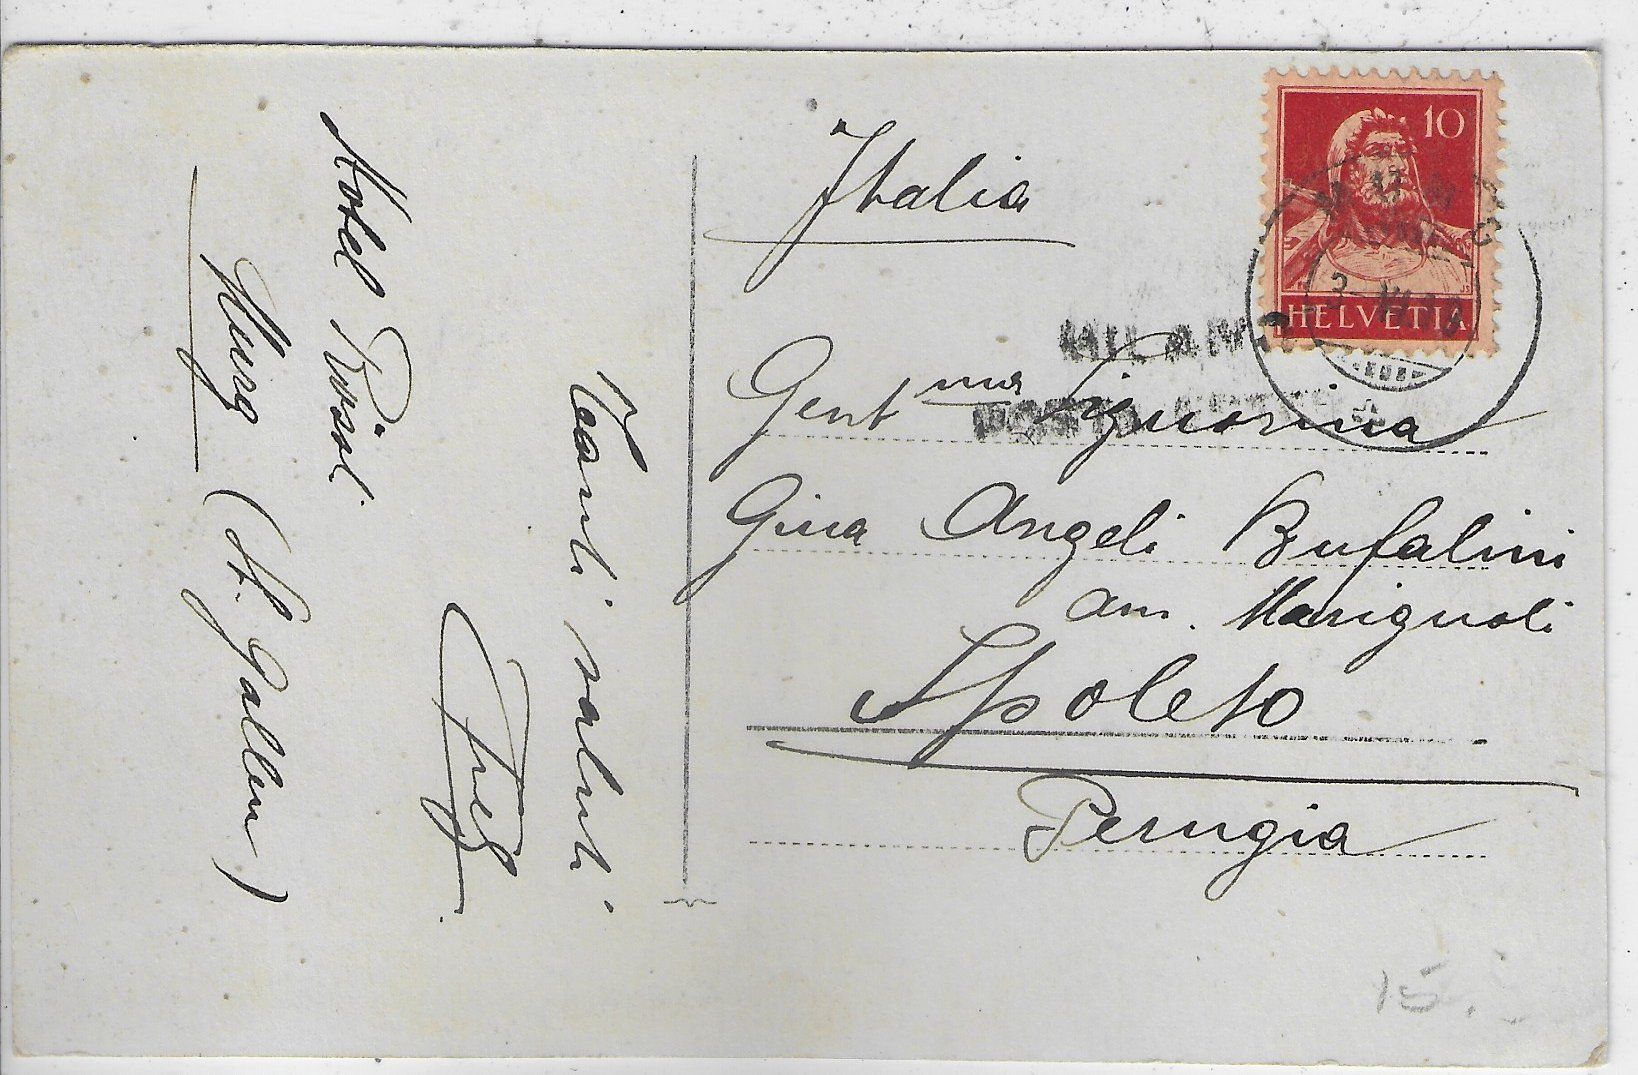 Hotel Rössli
Murg (St. Gallen)
Tanti saluti
Italia
10
HELVETIA
MURG
Gent ma Signorina
Gina Angeli Bufalini
am. Marignoli
Spoleto
Perugia
15.